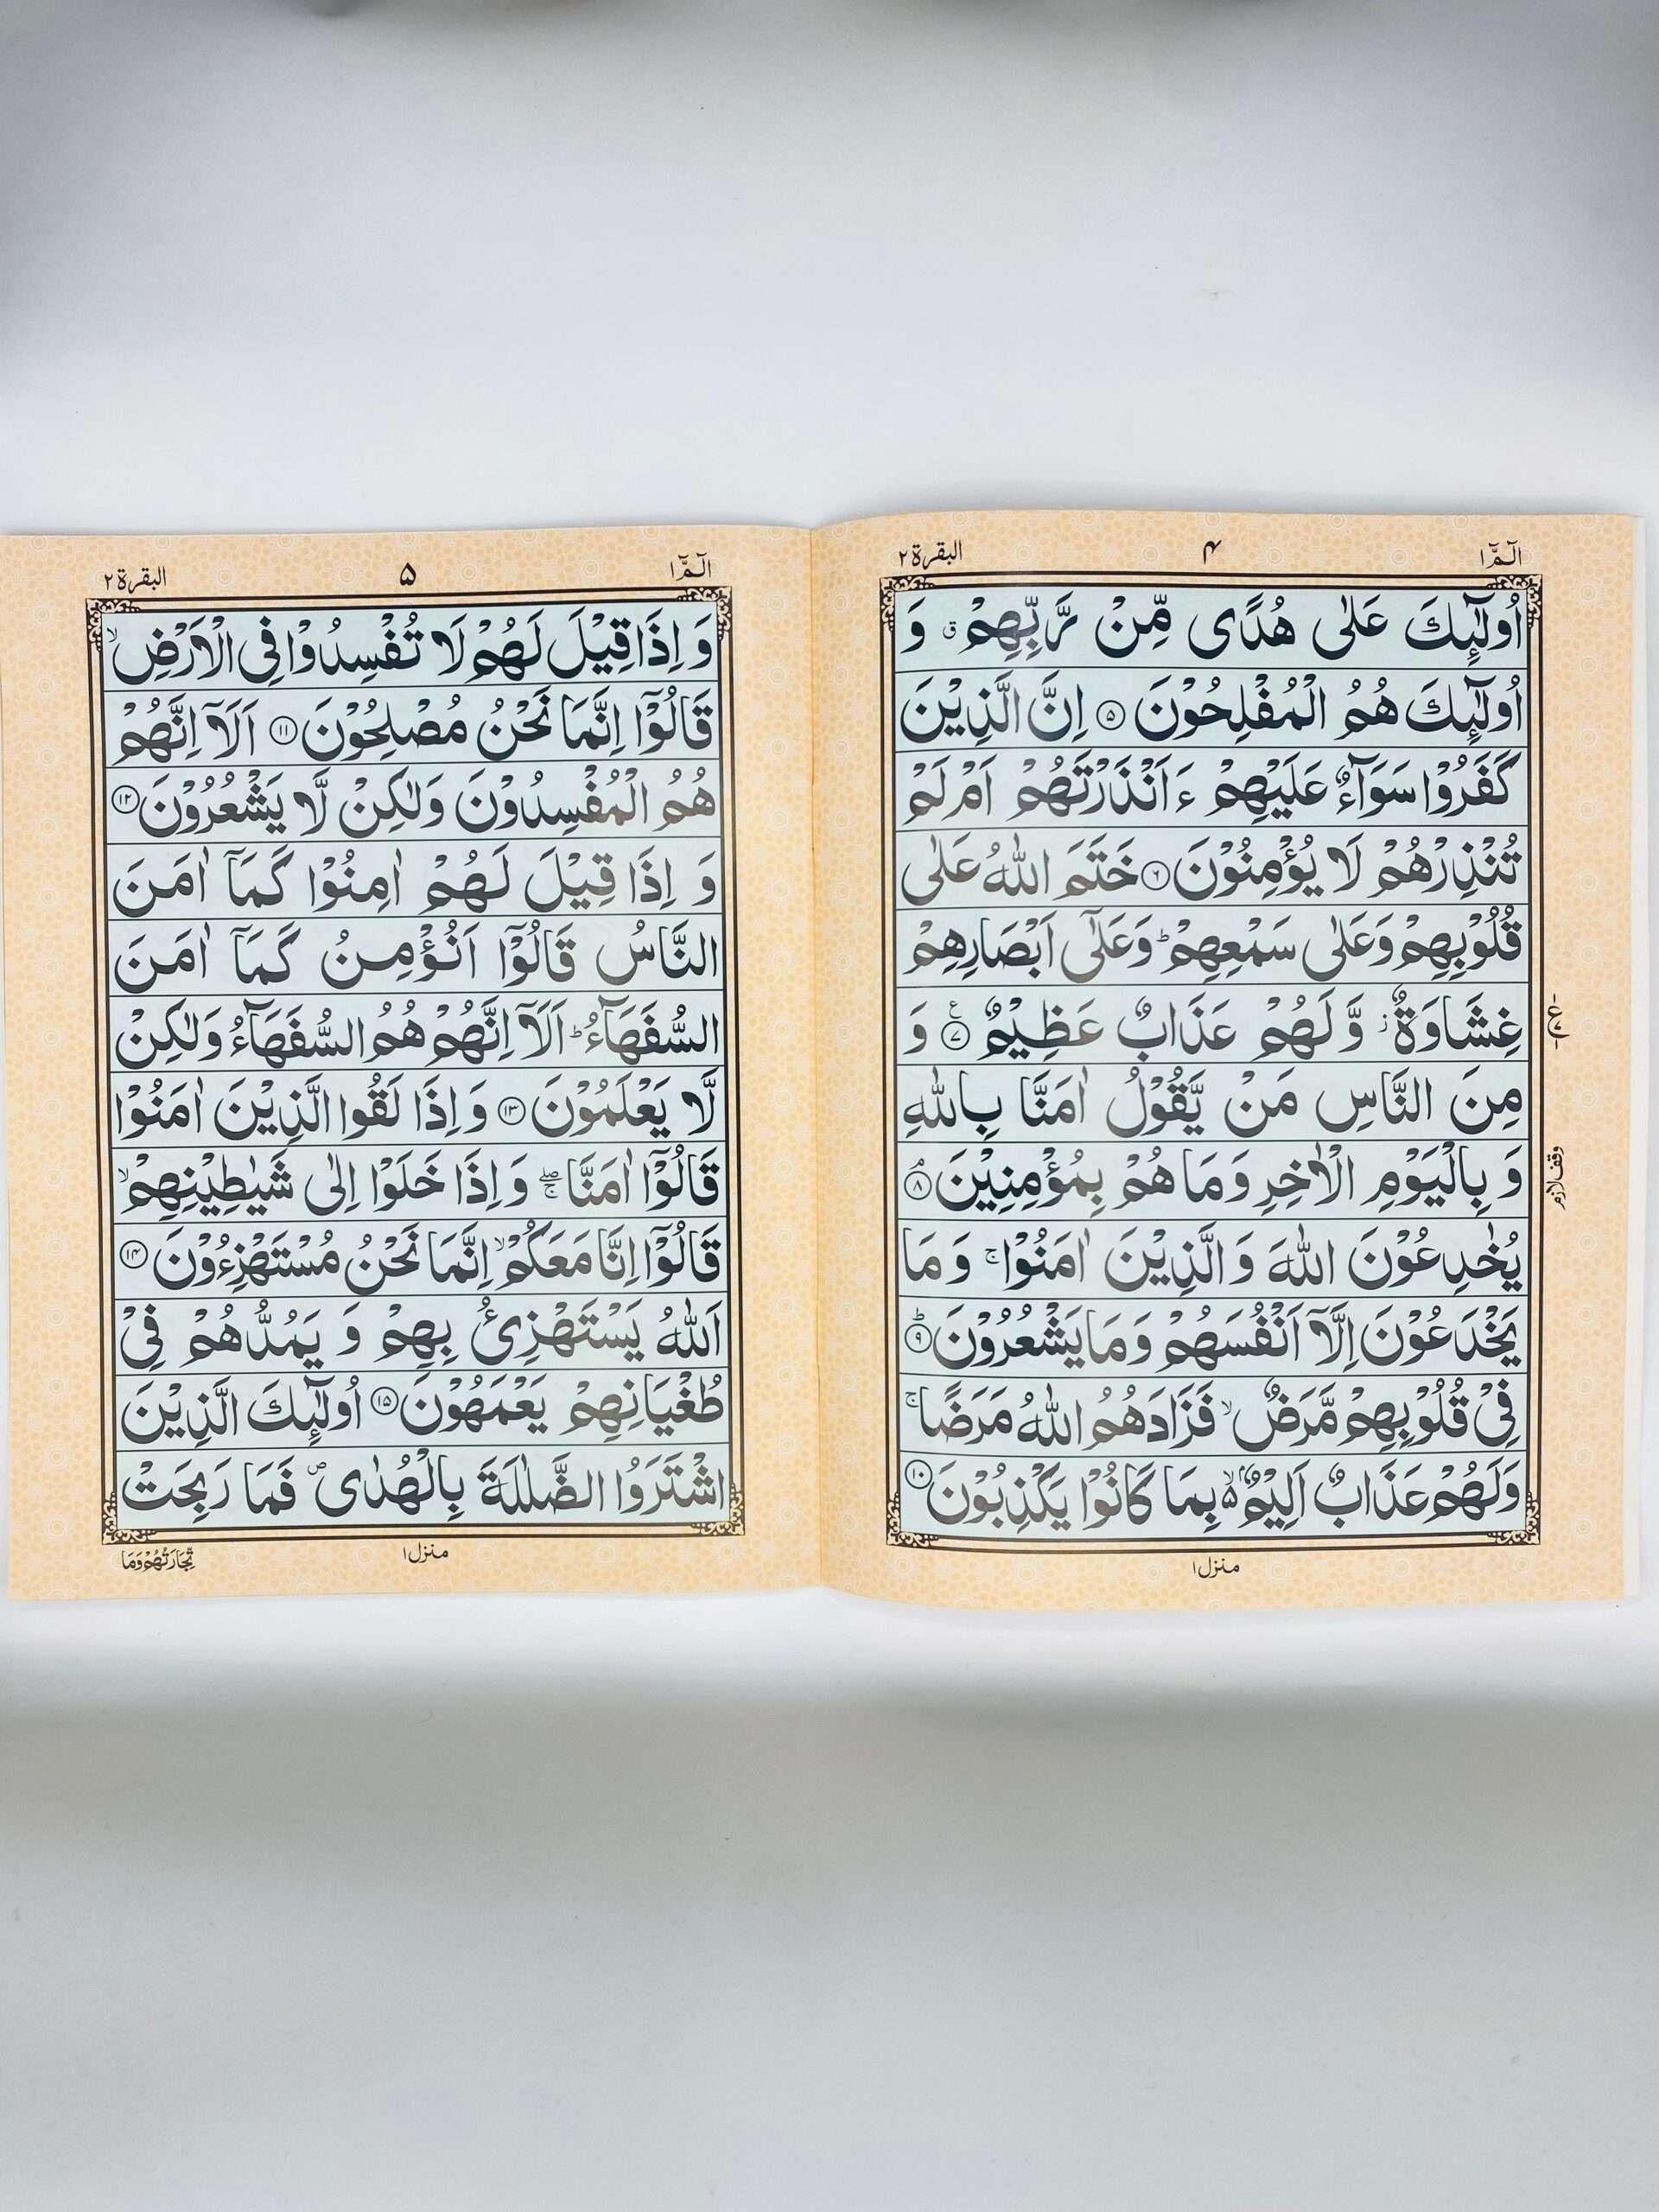 الٓمّٓ ١
۴
البقرة ٢
اُولٰٓئِكَ عَلٰى هُدًى مِّنْ رَّبِّهِمْ ۗ وَ
اُولٰٓئِكَ هُمُ الْمُفْلِحُوْنَ ۝۵ اِنَّ الَّذِيْنَ
كَفَرُوْا سَوَآءٌ عَلَيْهِمْ ءَاَنْذَرْتَهُمْ اَمْ لَمْ
تُنْذِرْهُمْ لَا يُؤْمِنُوْنَ ۝۶ خَتَمَ اللّٰهُ عَلٰى
قُلُوْبِهِمْ وَعَلٰى سَمْعِهِمْ ؕ وَعَلٰٓى اَبْصَارِهِمْ
غِشَاوَةٌ ز وَّلَهُمْ عَذَابٌ عَظِيْمٌ ۝۷ ع وَ
مِنَ النَّاسِ مَنْ يَّقُوْلُ اٰمَنَّا بِاللّٰهِ
وَ بِالْيَوْمِ الْاٰخِرِ وَمَا هُمْ بِمُؤْمِنِيْنَ ۝۸ۘ
وقف لازم
يُخٰدِعُوْنَ اللّٰهَ وَالَّذِيْنَ اٰمَنُوْا ۚ وَ مَا
يَخْدَعُوْنَ اِلَّآ اَنْفُسَهُمْ وَمَا يَشْعُرُوْنَ ۝۹ؕ
فِيْ قُلُوْبِهِمْ مَّرَضٌ ۙ فَزَادَهُمُ اللّٰهُ مَرَضًا ۚ
وَلَهُمْ عَذَابٌ اَلِيْمٌۢ ۙ۬ بِمَا كَانُوْا يَكْذِبُوْنَ ۝۱۰
منزل ١
الٓمّٓ ١
۵
البقرة ٢
وَ اِذَا قِيْلَ لَهُمْ لَا تُفْسِدُوْا فِى الْاَرْضِ ۙ
قَالُوْٓا اِنَّمَا نَحْنُ مُصْلِحُوْنَ ۝۱۱ اَلَآ اِنَّهُمْ
هُمُ الْمُفْسِدُوْنَ وَلٰكِنْ لَّا يَشْعُرُوْنَ ۝۱۲
وَ اِذَا قِيْلَ لَهُمْ اٰمِنُوْا كَمَآ اٰمَنَ
النَّاسُ قَالُوْٓا اَنُؤْمِنُ كَمَآ اٰمَنَ
السُّفَهَآءُ ؕ اَلَآ اِنَّهُمْ هُمُ السُّفَهَآءُ وَلٰكِنْ
لَّا يَعْلَمُوْنَ ۝۱۳ وَ اِذَا لَقُوا الَّذِيْنَ اٰمَنُوْا
قَالُوْٓا اٰمَنَّا ۖۚ وَ اِذَا خَلَوْا اِلٰى شَيٰطِيْنِهِمْ ۙ
قَالُوْٓا اِنَّا مَعَكُمْ ۙ اِنَّمَا نَحْنُ مُسْتَهْزِءُوْنَ ۝۱۴
اَللّٰهُ يَسْتَهْزِئُ بِهِمْ وَ يَمُدُّهُمْ فِيْ
طُغْيَانِهِمْ يَعْمَهُوْنَ ۝۱۵ اُولٰٓئِكَ الَّذِيْنَ
اشْتَرَوُا الضَّلٰلَةَ بِالْهُدٰى ۪ فَمَا رَبِحَتْ
منزل ١
تِّجَارَتُهُمْ وَمَا